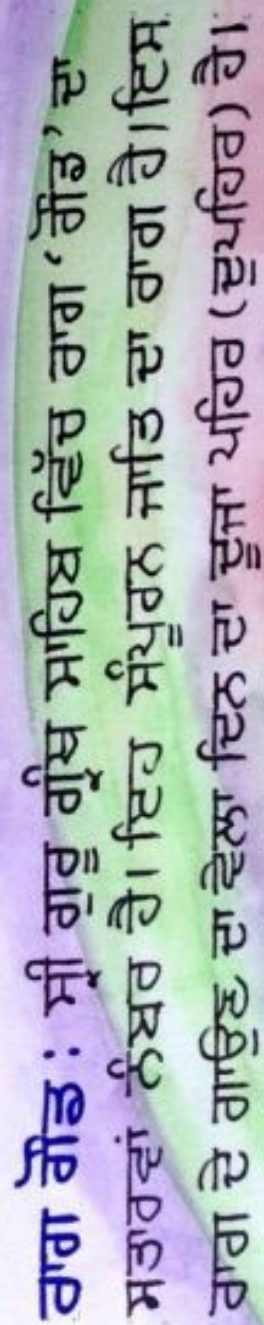 ਰਾਗ ਗੌਂਡ : ਸ੍ਰੀ ਗੁਰੂ ਗ੍ਰੰਥ ਸਾਹਿਬ ਵਿੱਚ ਰਾਗ, ਗੌਂਡ, ਦਾ
ਸਤਾਰਵਾਂ ਨੰਬਰ ਹੈ। ਇਹ ਸੰਪੂਰਨ ਜਾਤਿ ਦਾ ਰਾਗ ਹੈ।ਇਸ
ਰਾਗ ਦੇ ਗਾਉਣ ਦਾ ਵੇਲਾ ਦਿਨ ਦਾ ਦੂੱਜਾ ਪਹਿਰ (ਦੁੱਪਹਿਰ) ਹੈ।